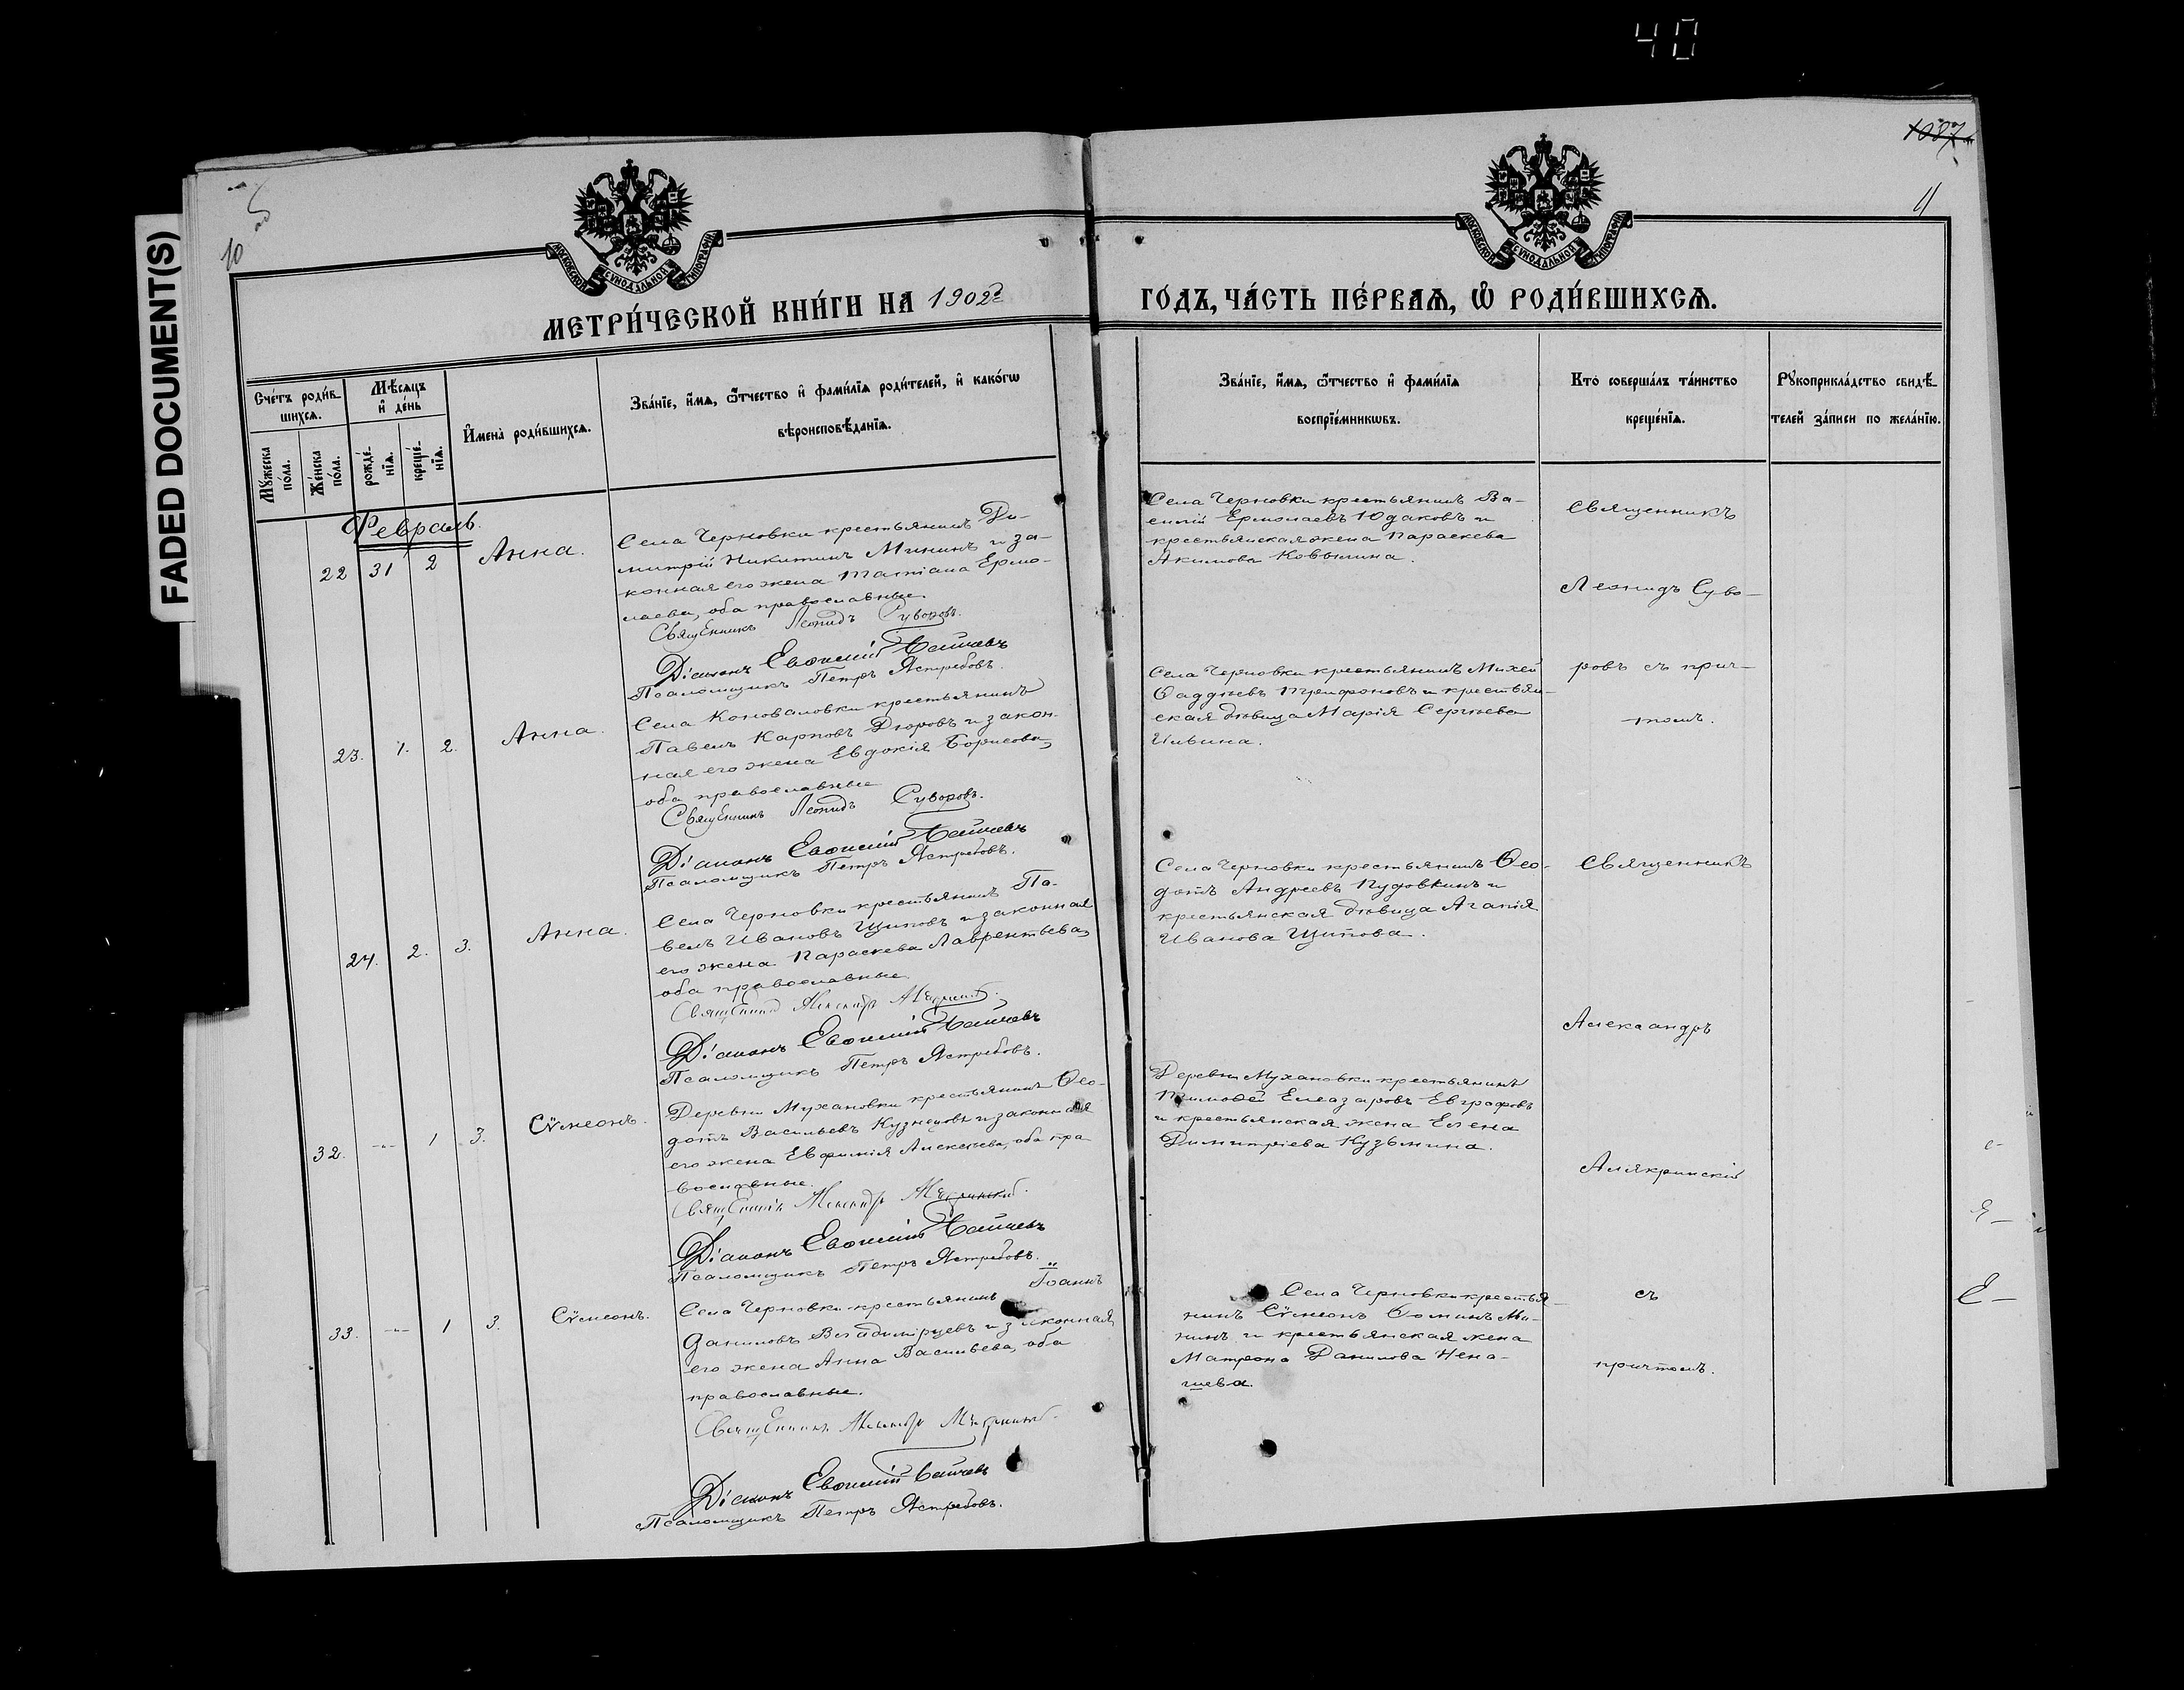 40
FADED DOCUMENT(S)
1087
10
11
МОСКОВСКОЙ СѴНОДАЛЬНОЙ ТИПОГРАФІИ
МОСКОВСКОЙ СѴНОДАЛЬНОЙ ТИПОГРАФІИ
МЕТРИ́ЧЕСКОЙ КНИ́ГИ НА 1902й
ГО́ДЪ, ЧА́СТЬ ПЕ́РВАѦ, Ѡ҆ РОДИ́ВШИХСѦ.
Сче́тъ роди́в-
шихсѧ.
Мꙋ́жеска
по́ла.
Же́нска
по́ла.
Мѣ́сѧцъ
и҆ де́нь
рожде́-
нїѧ.
креще́-
нїѧ.
И҆мена̀ роди́вшихсѧ.
Зва́нїе, и҆́мѧ, ѻ҆́тчество и҆ фамѝлїѧ роди́телей, и҆ како́гѡ
вѣроисповѣ́данїѧ.
Зва́нїе, и҆́мѧ, ѻ҆́тчество и҆ фамѝлїѧ
воспрїе́мникѡвъ.
Кто̀ соверша́лъ та́инство
креще́нїѧ.
Рꙋкоприкла́дство свидѣ́-
телей за́писи по жела́нїю.
Февраль.
22 31 2
Анна.
Села Черновки крестьянинъ Ди-
митрій Никитинъ Мининъ и за-
конная его жена Татіана Ермо-
лаева, оба православные.
Священникъ Леонидъ Суворовъ.
Діаконъ Евѳимій
Псаломщикъ Петръ Ястребовъ.
Села Черновки крестьянинъ Ва-
силій Ермолаевъ Юдаковъ и
крестьянская жена Параскева
Акимова Ковылина.
Священникъ
Леонидъ Суво-
ровъ съ прич-
томъ.
23. 1. 2.
Анна.
Села Коноваловки крестьянинъ
Павелъ Карповъ Дюровъ и закон-
ная его жена Евдокія Борисова,
оба православные
Священникъ Леонидъ Суворовъ.
Діаконъ Евѳимій
Псаломщикъ Петръ Ястребовъ.
Села Черновки крестьянинъ Михей
Ѳаддѣевъ Трифоновъ и крестьян-
ская дѣвица Марія Сергѣева
Ильина.
24. 2. 3.
Анна.
Села Черновки крестьянинъ Па-
велъ Ивановъ Щиповъ и законная
его жена Параскева Лаврентьева,
оба православные
Священникъ Александръ Алякринскій.
Діаконъ Евѳимій
Псаломщикъ Петръ Ястребовъ.
Села Черновки крестьянинъ Ѳео-
дотъ Андреевъ Пудовкинъ и
крестьянская дѣвица Агапія
Иванова Щипова.
Священникъ
Александръ
Алякринскій
съ
причтомъ.
32. -"- 1 3.
Сѵмеонъ.
Деревни Мухановки крестьянинъ Ѳео-
дотъ Васильевъ Кузнецовъ и законная
его жена Евфимія Алексѣева, оба пра-
вославные.
Священникъ Александръ Алякринскій.
Діаконъ Евѳимій
Псаломщикъ Петръ Ястребовъ.
Деревни Мухановки крестьянинъ
Тимоѳей Елеазаровъ Евграфовъ
и крестьянская жена Елена
Димитріева Кузьмина.
33. -"- 1 3.
Сѵмеонъ.
Села Черновки крестьянинъ Іоаннъ
Даниловъ Владимірцевъ и законная
его жена Анна Васильева, оба
православные.
Священникъ Александръ Алякринскій.
Діаконъ Евѳимій
Псаломщикъ Петръ Ястребовъ.
Села Черновки крестья-
нинъ Сѵмеонъ Ѳоминъ Ми-
нинъ и крестьянская жена
Матрона Данилова Нена-
шева.